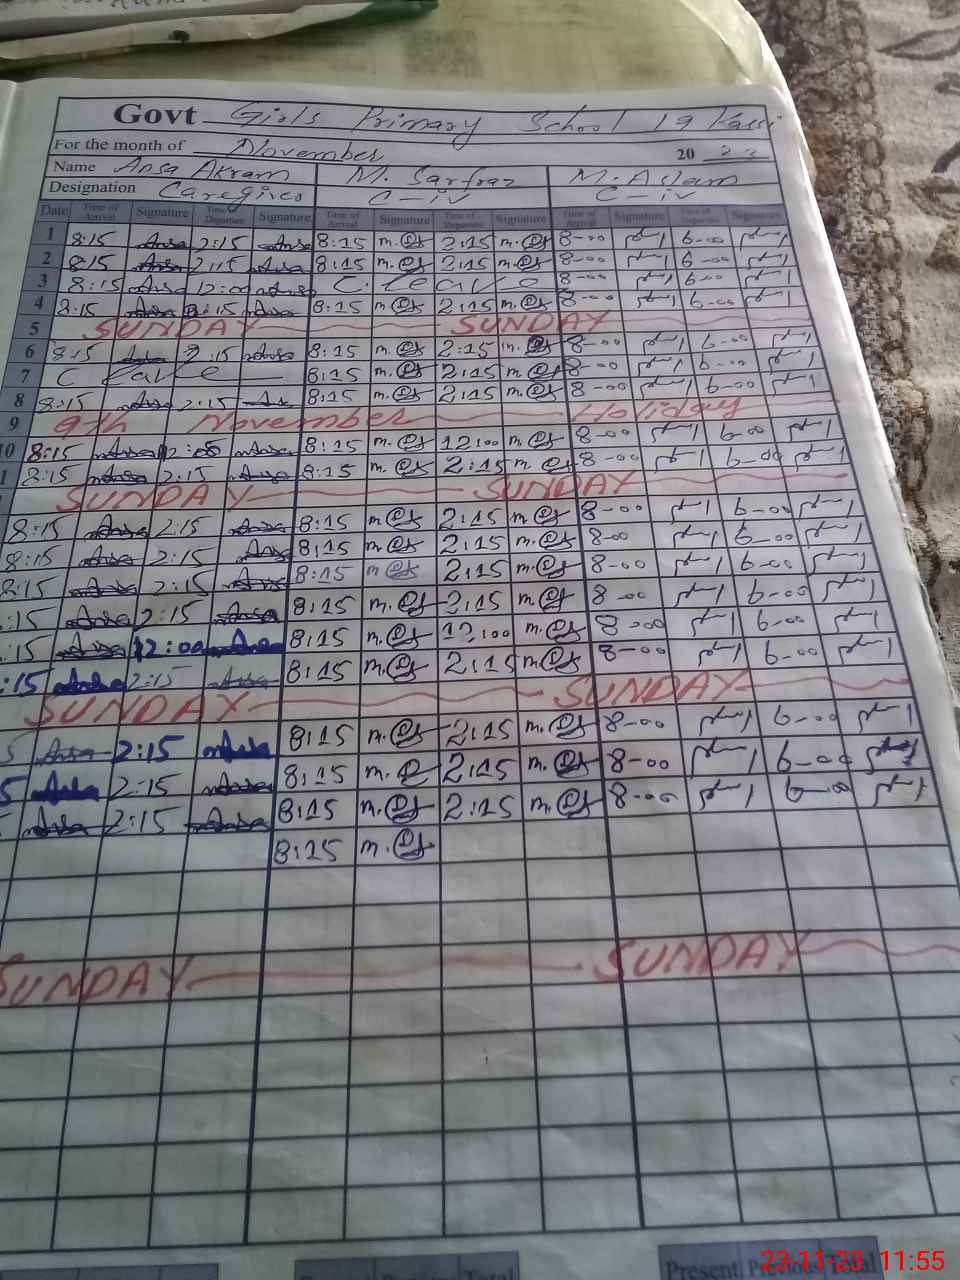 Govt Girls Primary School 19 Kassi
For the month of November 20 23
Name Ansa Akram M. Sarfraz M. Aslam
Designation Caregiver C-iv C-iv
Date Time of Arrival Signature Time of Departure Signature Time of Arrival Signature Time of Departure Signature Time of Arrival Signature Time of Departure Signature
1 8:15 Ansa 2:15 Ansa 8:15 2:15 8-00 6-00
2 8:15 Ansa 2:15 Ansa 8:15 2:15 8-00 6-00
3 8:15 Ansa 12:00 Ansa C. Leave 8-00 6-00
4 8:15 Ansa 2:15 Ansa 8:15 2:15 8-00 6-00
5 SUNDAY SUNDAY
6 8:15 Ansa 2:15 Ansa 8:15 2:15 8-00 6-00
7 C Leave 8:15 2:15 8-00 6-00
8 8:15 Ansa 2:15 8:15 2:15 8-00 6-00
9 9th November Holiday
10 8:15 Ansa 12:00 Ansa 8:15 12:00 8-00 6-00
8:15 Ansa 2:15 Ansa 8:15 2:15 8-00 6-00
SUNDAY SUNDAY
8:15 Ansa 2:15 Ansa 8:15 2:15 8-00 6-00
8:15 Ansa 2:15 Ansa 8:15 2:15 8-00 6-00
8:15 Ansa 2:15 Ansa 8:15 2:15 8-00 6-00
:15 Ansa 2:15 Ansa 8:15 2:15 8-00 6-00
:15 Ansa 12:00 Ansa 8:15 12:00 8-00 6-00
:15 Ansa 2:15 Ansa 8:15 2:15 8-00 6-00
SUNDAY SUNDAY
5 Ansa 2:15 Ansa 8:15 2:15 8-00 6-00
5 Ansa 2:15 Ansa 8:15 2:15 8-00 6-00
Ansa 2:15 Ansa 8:15 2:15 8-00 6-00
8:15
SUNDAY SUNDAY
Present Previous Total Present Previous Total
23-11-23 11:55